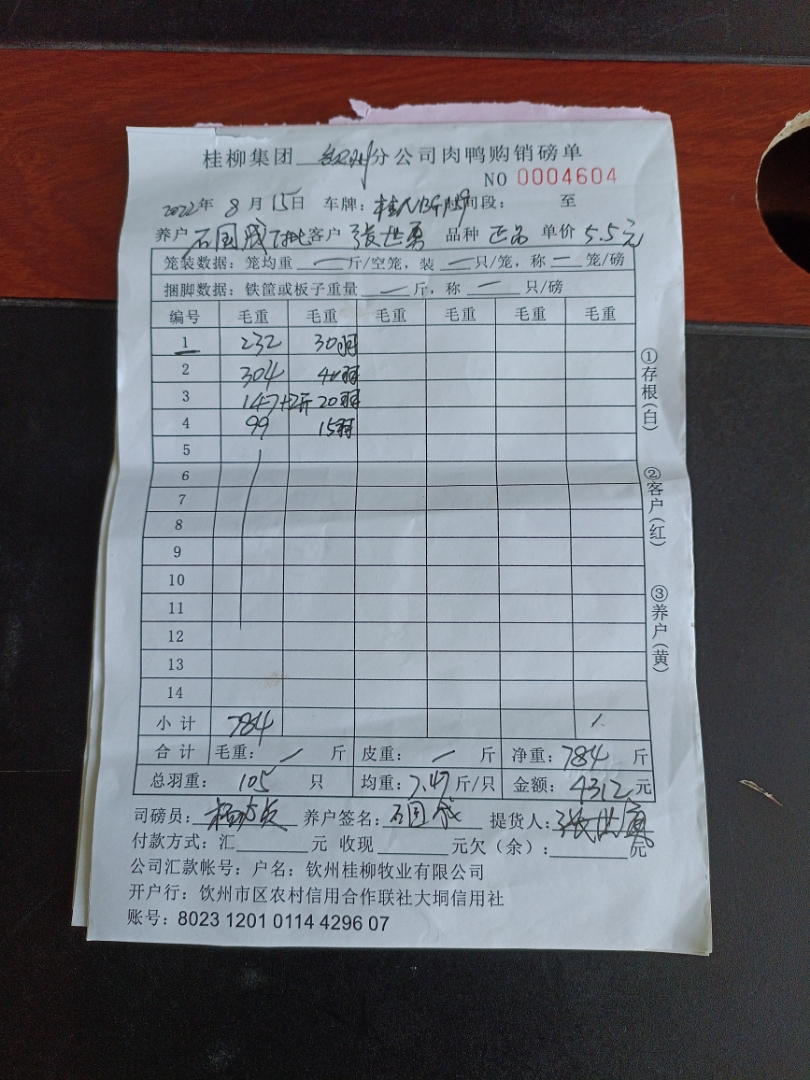 桂柳集团 钦州 分公司肉鸭购销磅单
NO 0004604
2022年 8 月 15日 车牌: 时间段: 至
养户 石国成 客户 张世勇 品种 正品 单价 5.5元
笼装数据: 笼均重 — 斤/空笼, 装 — 只/笼, 称 — 笼/磅
捆脚数据: 铁筐或板子重量 — 斤, 称 — 只/磅
编号 毛重 毛重 毛重 毛重 毛重 毛重
1 232 30羽
2 304 40羽
3 147+2斤 20羽
4 99 15羽
5
6
7
8
9
10
11
12
13
14
小 计 784
合 计 毛重: 斤 皮重: — 斤 净重: 784 斤
总羽重: 105 只 均重: 7.47 斤/只 金额: 4312 元
司磅员: 养户签名: 石国成 提货人: 张世勇
付款方式: 汇 元 收现 元欠(余): 元
公司汇款帐号: 户名: 钦州桂柳牧业有限公司
开户行: 钦州市区农村信用合作联社大垌信用社
账号: 8023 1201 0114 4296 07
①存根(白)
②客户(红)
③养户(黄)